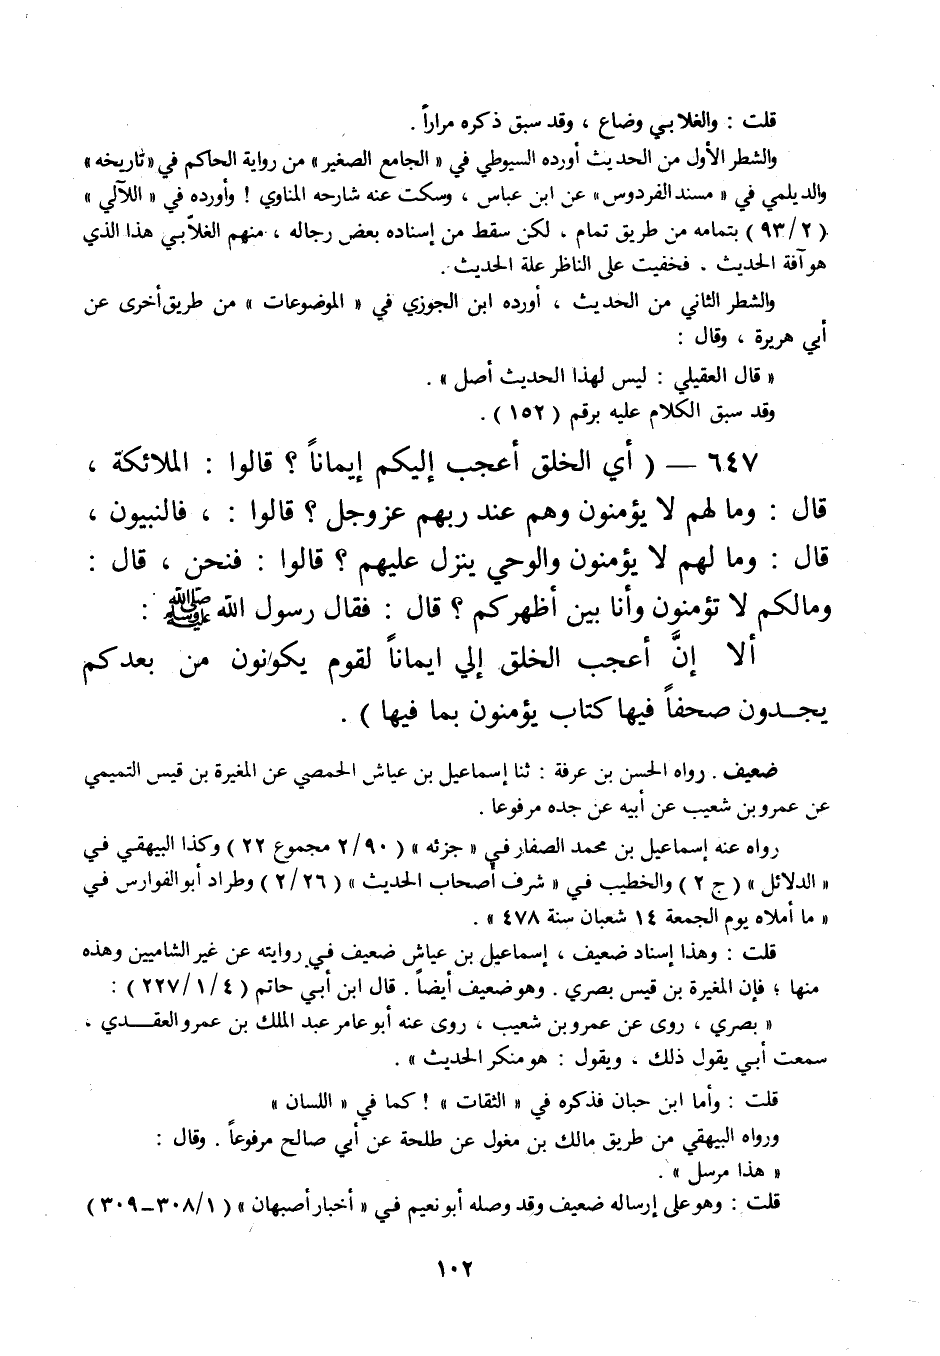 قلت : والغلابي وضاع ، وقد سبق ذكره مراراً .
والشطر الأول من الحديث أورده السيوطي في « الجامع الصغير » من رواية الحاكم في « تاريخه »
والديلمي في « مسند الفردوس » عن ابن عباس ، وسكت عنه شارحه المناوي ! وأورده في « اللآلي »
( ٩٣/٢ ) بتمامه من طريق تمام ، لكن سقط من إسناده بعض رجاله ، منهم الغلاّبي هذا الذي
هو آفة الحديث . فخفيت على الناظر علة الحديث .
والشطر الثاني من الحديث ، أورده ابن الجوزي في « الموضوعات » من طريق أخرى عن
أبي هريرة ، وقال :
« قال العقيلي : ليس لهذا الحديث أصل » .
وقد سبق الكلام عليه برقم ( ١٥٢ ) .
٦٤٧ — ( أي الخلق أعجب إليكم إيماناً ؟ قالوا : الملائكة ،
قال : وما لهم لا يؤمنون وهم عند ربهم عزوجل ؟ قالوا : ، فالنبيون ،
قال : وما لهم لا يؤمنون والوحي ينزل عليهم ؟ قالوا : فنحن ، قال :
ومالكم لا تؤمنون وأنا بين أظهركم ؟ قال : فقال رسول الله ﷺ :
ألا إنَّ أعجب الخلق إلي ايماناً لقوم يكونون من بعدكم
يجــدون صحفاً فيها كتاب يؤمنون بما فيها ) .
ضعيف . رواه الحسن بن عرفة : ثنا إسماعيل بن عياش الحمصي عن المغيرة بن قيس التميمي
عن عمرو بن شعيب عن أبيه عن جده مرفوعا .
رواه عنه إسماعيل بن محمد الصفار في « جزئه » ( ٢/٩٠ مجموع ٢٢ ) وكذا البيهقي في
« الدلائل » ( ج ٢ ) والخطيب في « شرف أصحاب الحديث » ( ٢/٢٦ ) وطراد أبو الفوارس في
« ما أملاه يوم الجمعة ١٤ شعبان سنة ٤٧٨ » .
قلت : وهذا إسناد ضعيف ، إسماعيل بن عياش ضعيف في روايته عن غير الشاميين وهذه
منها ؛ فإن المغيرة بن قيس بصري . وهو ضعيف أيضاً . قال ابن أبي حاتم ( ٢٢٧/١/٤ ) :
« بصري ، روى عن عمرو بن شعيب ، روى عنه أبو عامر عبد الملك بن عمرو العقــدي ،
سمعت أبي يقول ذلك ، ويقول : هو منكر الحديث » .
قلت : وأما ابن حبان فذكره في « الثقات » ! كما في « اللسان »
ورواه البيهقي من طريق مالك بن مغول عن طلحة عن أبي صالح مرفوعاً . وقال :
« هذا مرسل » .
قلت : وهو على إرساله ضعيف وقد وصله أبو نعيم في « أخبار أصبهان » ( ٣٠٨/١ــ٣٠٩ )
١٠٢